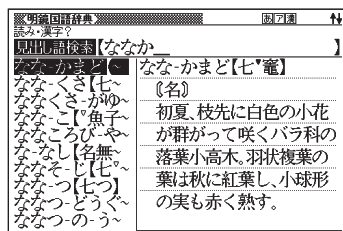 明鏡国語辞典
あア漢
読み・漢字?
見出し語検索【ななか＿ 】
なな-かまど【~
なな-くさ【七~
ななくさ-がゆ~
なな-こ【°魚子
ななころび-や~
な-なし【名無~
ななそ-じ【七°~
なな-つ【七つ】
ななつ-どうぐ~
ななつ-の-う~
なな-かまど【七°竈】
〘名〙
初夏、枝先に白色の小花
が群がって咲くバラ科の
落葉小高木。羽状複葉の
葉は秋に紅葉し、小球形
の実も赤く熟す。